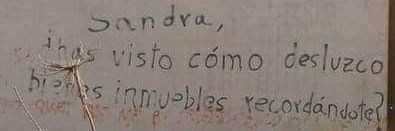 Sandra,
¿has visto cómo desluzco
bienes inmuebles recordándote?